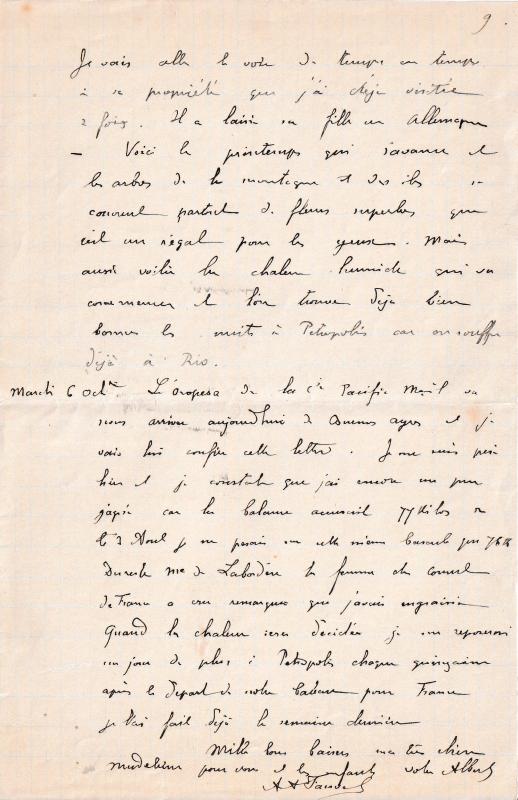 9
Je vais aller le voir de temps en temps
à sa propriété que j'ai déjà visitée
2 fois. Il a laissé sa fille en Allemagne
- Voici le printemps qui s'avance et
les arbres de la montagne et des îles se
couvrent partout de fleurs superbes que
c'est un régal pour les yeux. Mais
aussi voilà la chaleur humide qui va
commencer et l'on trouve déjà bien
bonnes les nuits à Petropolis car on souffre
déjà à Rio.
Mardi 6 Octbre L'Oropesa de la Cie Pacific Mail va
nous arriver aujourd'hui de Buenos ayres et je
vais lui confier cette lettre. Je me suis pesé
hier et je constate que j'ai encore un peu
gagné car la balance accusait 77 kilos
le 2 Août je ne pesais sur cette même bascule que
Du reste Mme de Labordère la femme du consul
de France a cru remarquer que j'avais engraissé
Quand la chaleur sera décidée je me reposerai
un jour de plus à Petropolis chaque quinzaine
après le départ de notre bateau pour France
je l'ai fait déjà la semaine dernière
Mille bons baisers ma très chère
Madeleine pour vous et les enfants votre Albert